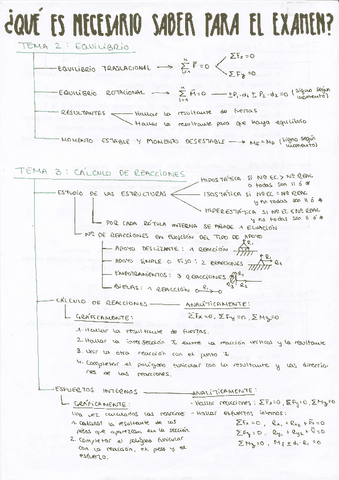 ¿QUÉ ES NECESARIO SABER PARA EL EXAMEN?
TEMA 2: EQUILIBRIO
EQUILIBRIO TRASLACIONAL → Σ F = 0
ΣFx = 0
ΣFy = 0
EQUILIBRIO ROTACIONAL → Σ M = 0 → ±P₁·d₁ ± P₂·d₂ = 0 (signo según momento)
RESULTANTES → Hallar la resultante de fuerzas
Hallar la resultante para que haya equilibrio
MOMENTO ESTABLE Y MOMENTO DESESTABLE → (signo según momento)
TEMA 3: CÁLCULO DE REACCIONES
ESTUDIO DE LAS ESTRUCTURAS
HIPOSTÁTICA SI Nº EC > Nº REAC
o todas son
ISOSTÁTICA SI Nº EC = Nº REAC
y no todas son
HIPERESTÁTICA SI Nº EC < Nº REAC
y no todas son
POR CADA RÓTULA INTERNA SE AÑADE 1 ECUACIÓN
Nº DE REACCIONES EN FUNCIÓN DEL TIPO DE APOYO
APOYO DESLIZANTE: 1 REACCIÓN
APOYO SIMPLE O FIJO: 2 REACCIONES
EMPOTRAMIENTOS: 3 REACCIONES
BIELAS: 1 REACCIÓN
CÁLCULO DE REACCIONES
ANALÍTICAMENTE:
GRÁFICAMENTE:
ΣFx = 0, ΣFy = 0, ΣMz = 0
1. Hallar la resultante de fuerzas.
2. Hallar la intersección I entre la reacción vertical y la resultante
3. Unir la otra reacción con el punto I
4. Completar el polígono funicular con la resultante y las direcciones de las reacciones.
ESFUERZOS INTERNOS
ANALÍTICAMENTE:
GRÁFICAMENTE:
- Hallar reacciones: ΣFx=0, ΣFy=0, ΣMz=0
Una vez calculadas las reacciones
- Hallar esfuerzos internos:
1. Calcular la resultante de los
pesos que aparezcan en la sección
2. Completar el polígono funicular
con la reacción, el peso y el
esfuerzo.
ΣFx = 0,
ΣFy = 0,
ΣMz = 0,